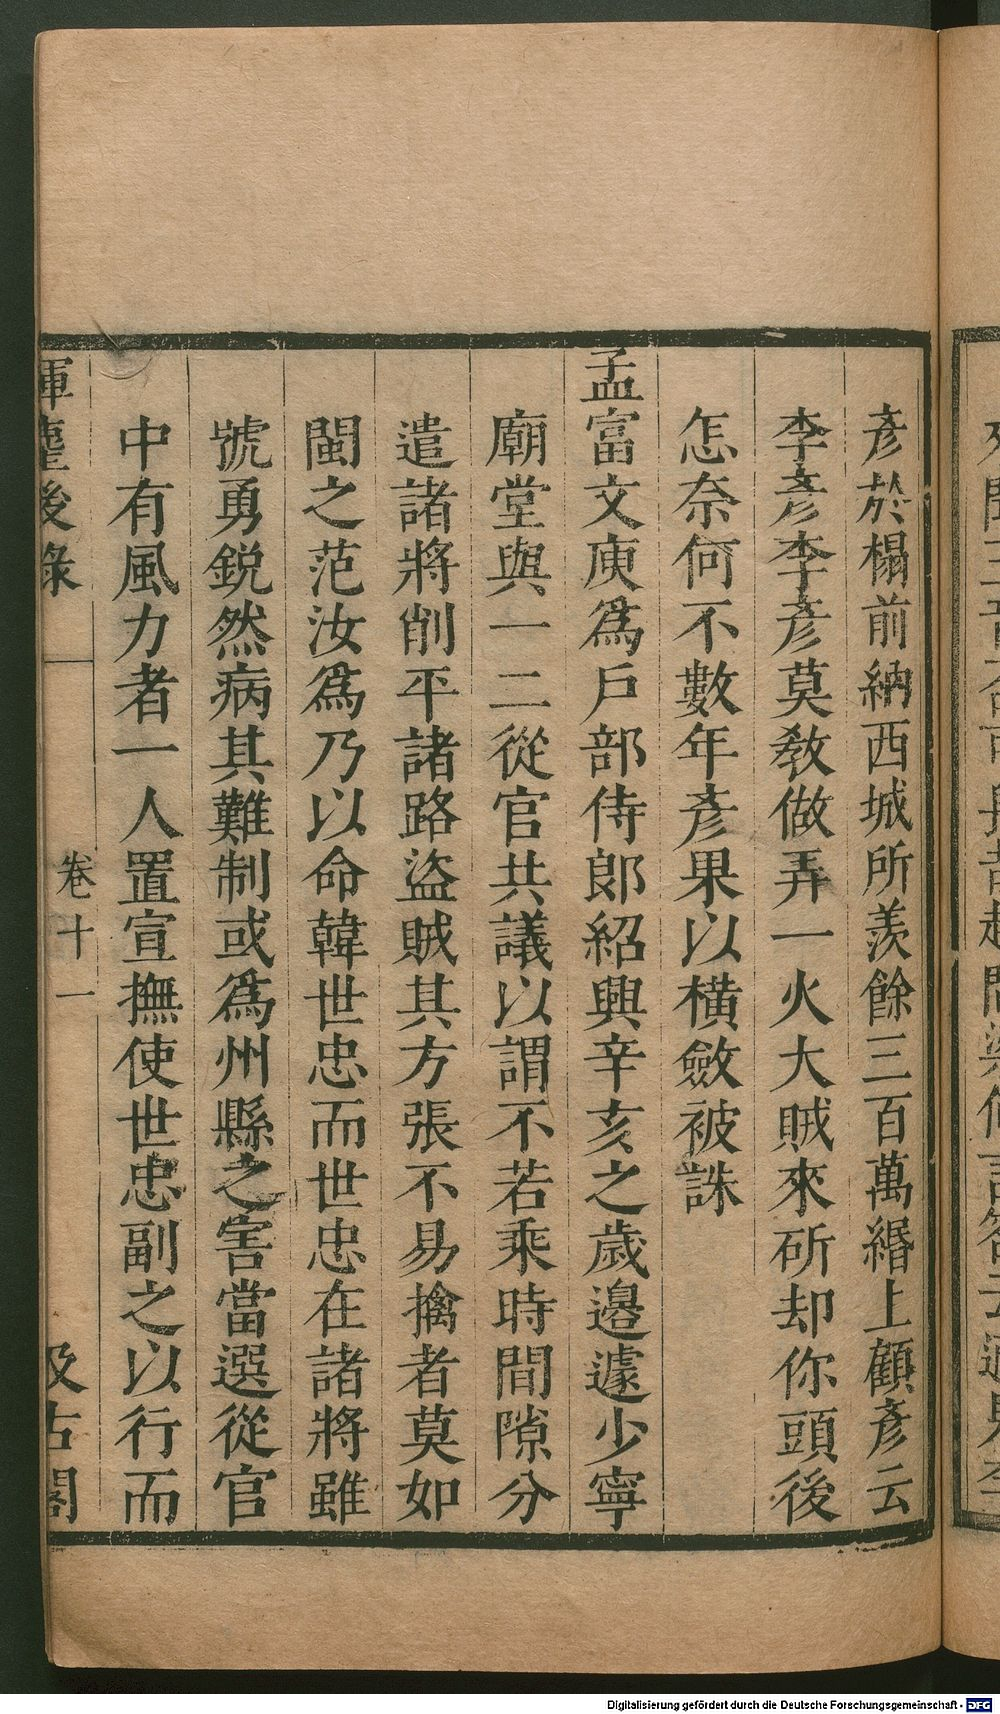 彥於榻前納西城所羨餘三百萬緡上顧彥云
李彥李彥莫教做弄一火大賊來斫却你頭後
怎奈何不數年彥果以橫斂被誅
孟富文庾爲戶部侍郎紹興辛亥之歲邉遽少寧
廟堂與一二從官共議以謂不若乘時間隙分
遣諸將削平諸路盜賊其方張不易擒者莫如
閩之范汝爲乃以命韓世忠而世忠在諸將雖
號勇銳然病其難制或爲州縣之害當選從官
中有風力者一人置宣撫使世忠副之以行而
揮麈後錄 卷十一 汲古閣
Digitalisierung gefördert durch die Deutsche Forschungsgemeinschaft - DFG